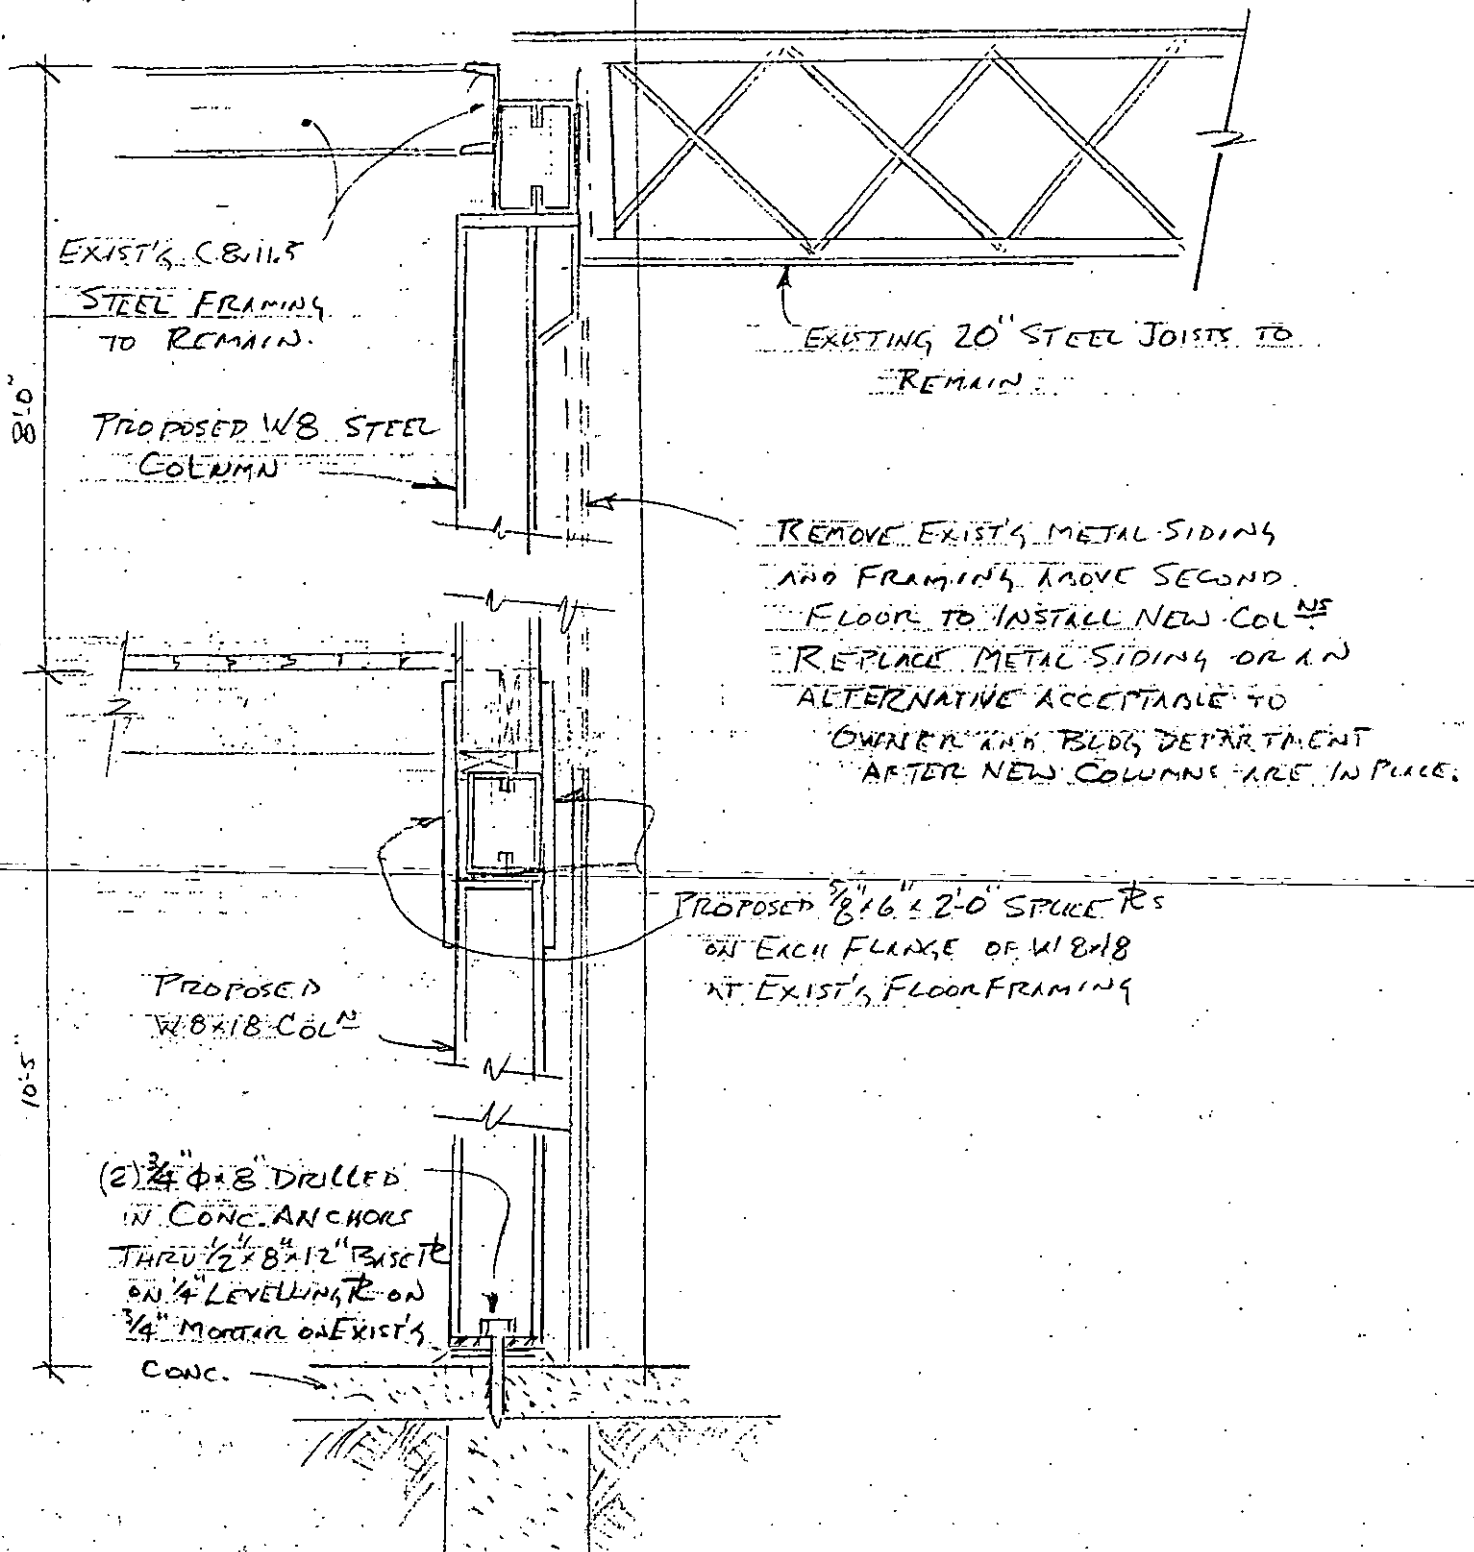 EXIST'G C8x11.5
STEEL FRAMING
TO REMAIN.
EXISTING 20" STEEL JOISTS TO
REMAIN.
8'-0"
PROPOSED W8 STEEL
COLUMN
REMOVE EXIST'G METAL SIDING
AND FRAMING ABOVE SECOND
FLOOR TO INSTALL NEW COLNS
REPLACE METAL SIDING OR AN
ALTERNATIVE ACCEPTABLE TO
OWNER AND BLDG DEPARTMENT
AFTER NEW COLUMNS ARE IN PLACE.
PROPOSED 5/8"x6"x2'-0" SPLICE PLs
ON EACH FLANGE OF W8x18
AT EXIST'G FLOOR FRAMING
PROPOSED
W8x18 COLN
10'-5"
(2) 3/4"φx8" DRILLED
IN CONC. ANCHORS
THRU 1/2"x8"x12" BASE PL
ON 1/4" LEVELLING PL ON
3/4" MORTAR ON EXIST'G
CONC.